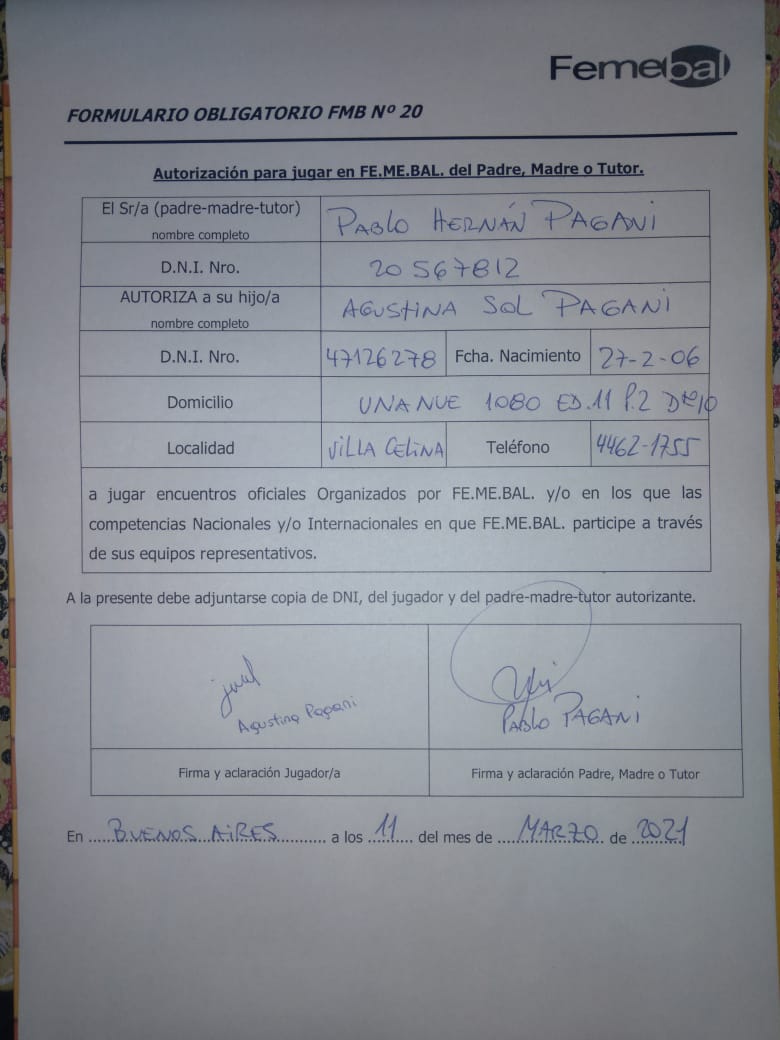 Femebal
FORMULARIO OBLIGATORIO FMB Nº 20
Autorización para jugar en FE.ME.BAL. del Padre, Madre o Tutor.
El Sr/a (padre-madre-tutor)
nombre completo
PABLO HERNÁN PAGANI
D.N.I. Nro.
20567812
AUTORIZA a su hijo/a
nombre completo
AGUSTINA SOL PAGANI
D.N.I. Nro.
47126278
Fcha. Nacimiento
27-2-06
Domicilio
UNANUE 1080 ED.11 P.2 Dto10
Localidad
VILLA CELINA
Teléfono
4462-1755
a jugar encuentros oficiales Organizados por FE.ME.BAL. y/o en los que las
competencias Nacionales y/o Internacionales en que FE.ME.BAL. participe a través
de sus equipos representativos.
A la presente debe adjuntarse copia de DNI, del jugador y del padre-madre-tutor autorizante.
Agustina Pagani
PABLO PAGANI
Firma y aclaración Jugador/a
Firma y aclaración Padre, Madre o Tutor
En BUENOS AIRES a los 11 del mes de MARZO de 2021